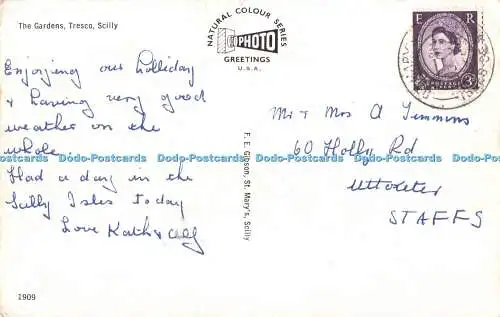 The Gardens, Tresco, Scilly
Enjoying our holliday
& having very good
weather on the
whole.
Had a day in the
Scilly Isles today
Love Kath &
1909
NATURAL COLOUR SERIES
PHOTO
GREETINGS
U.S.A.
F. E. Gibson, St. Mary's, Scilly
E R
POSTAGE
3D
Mr & Mrs A Timmins
60 Holly Rd
Uttoxeter
STAFFS
Dodo-Postcards Dodo-Postcards Dodo-Postcards Dodo-Postcards Dodo-Postcards